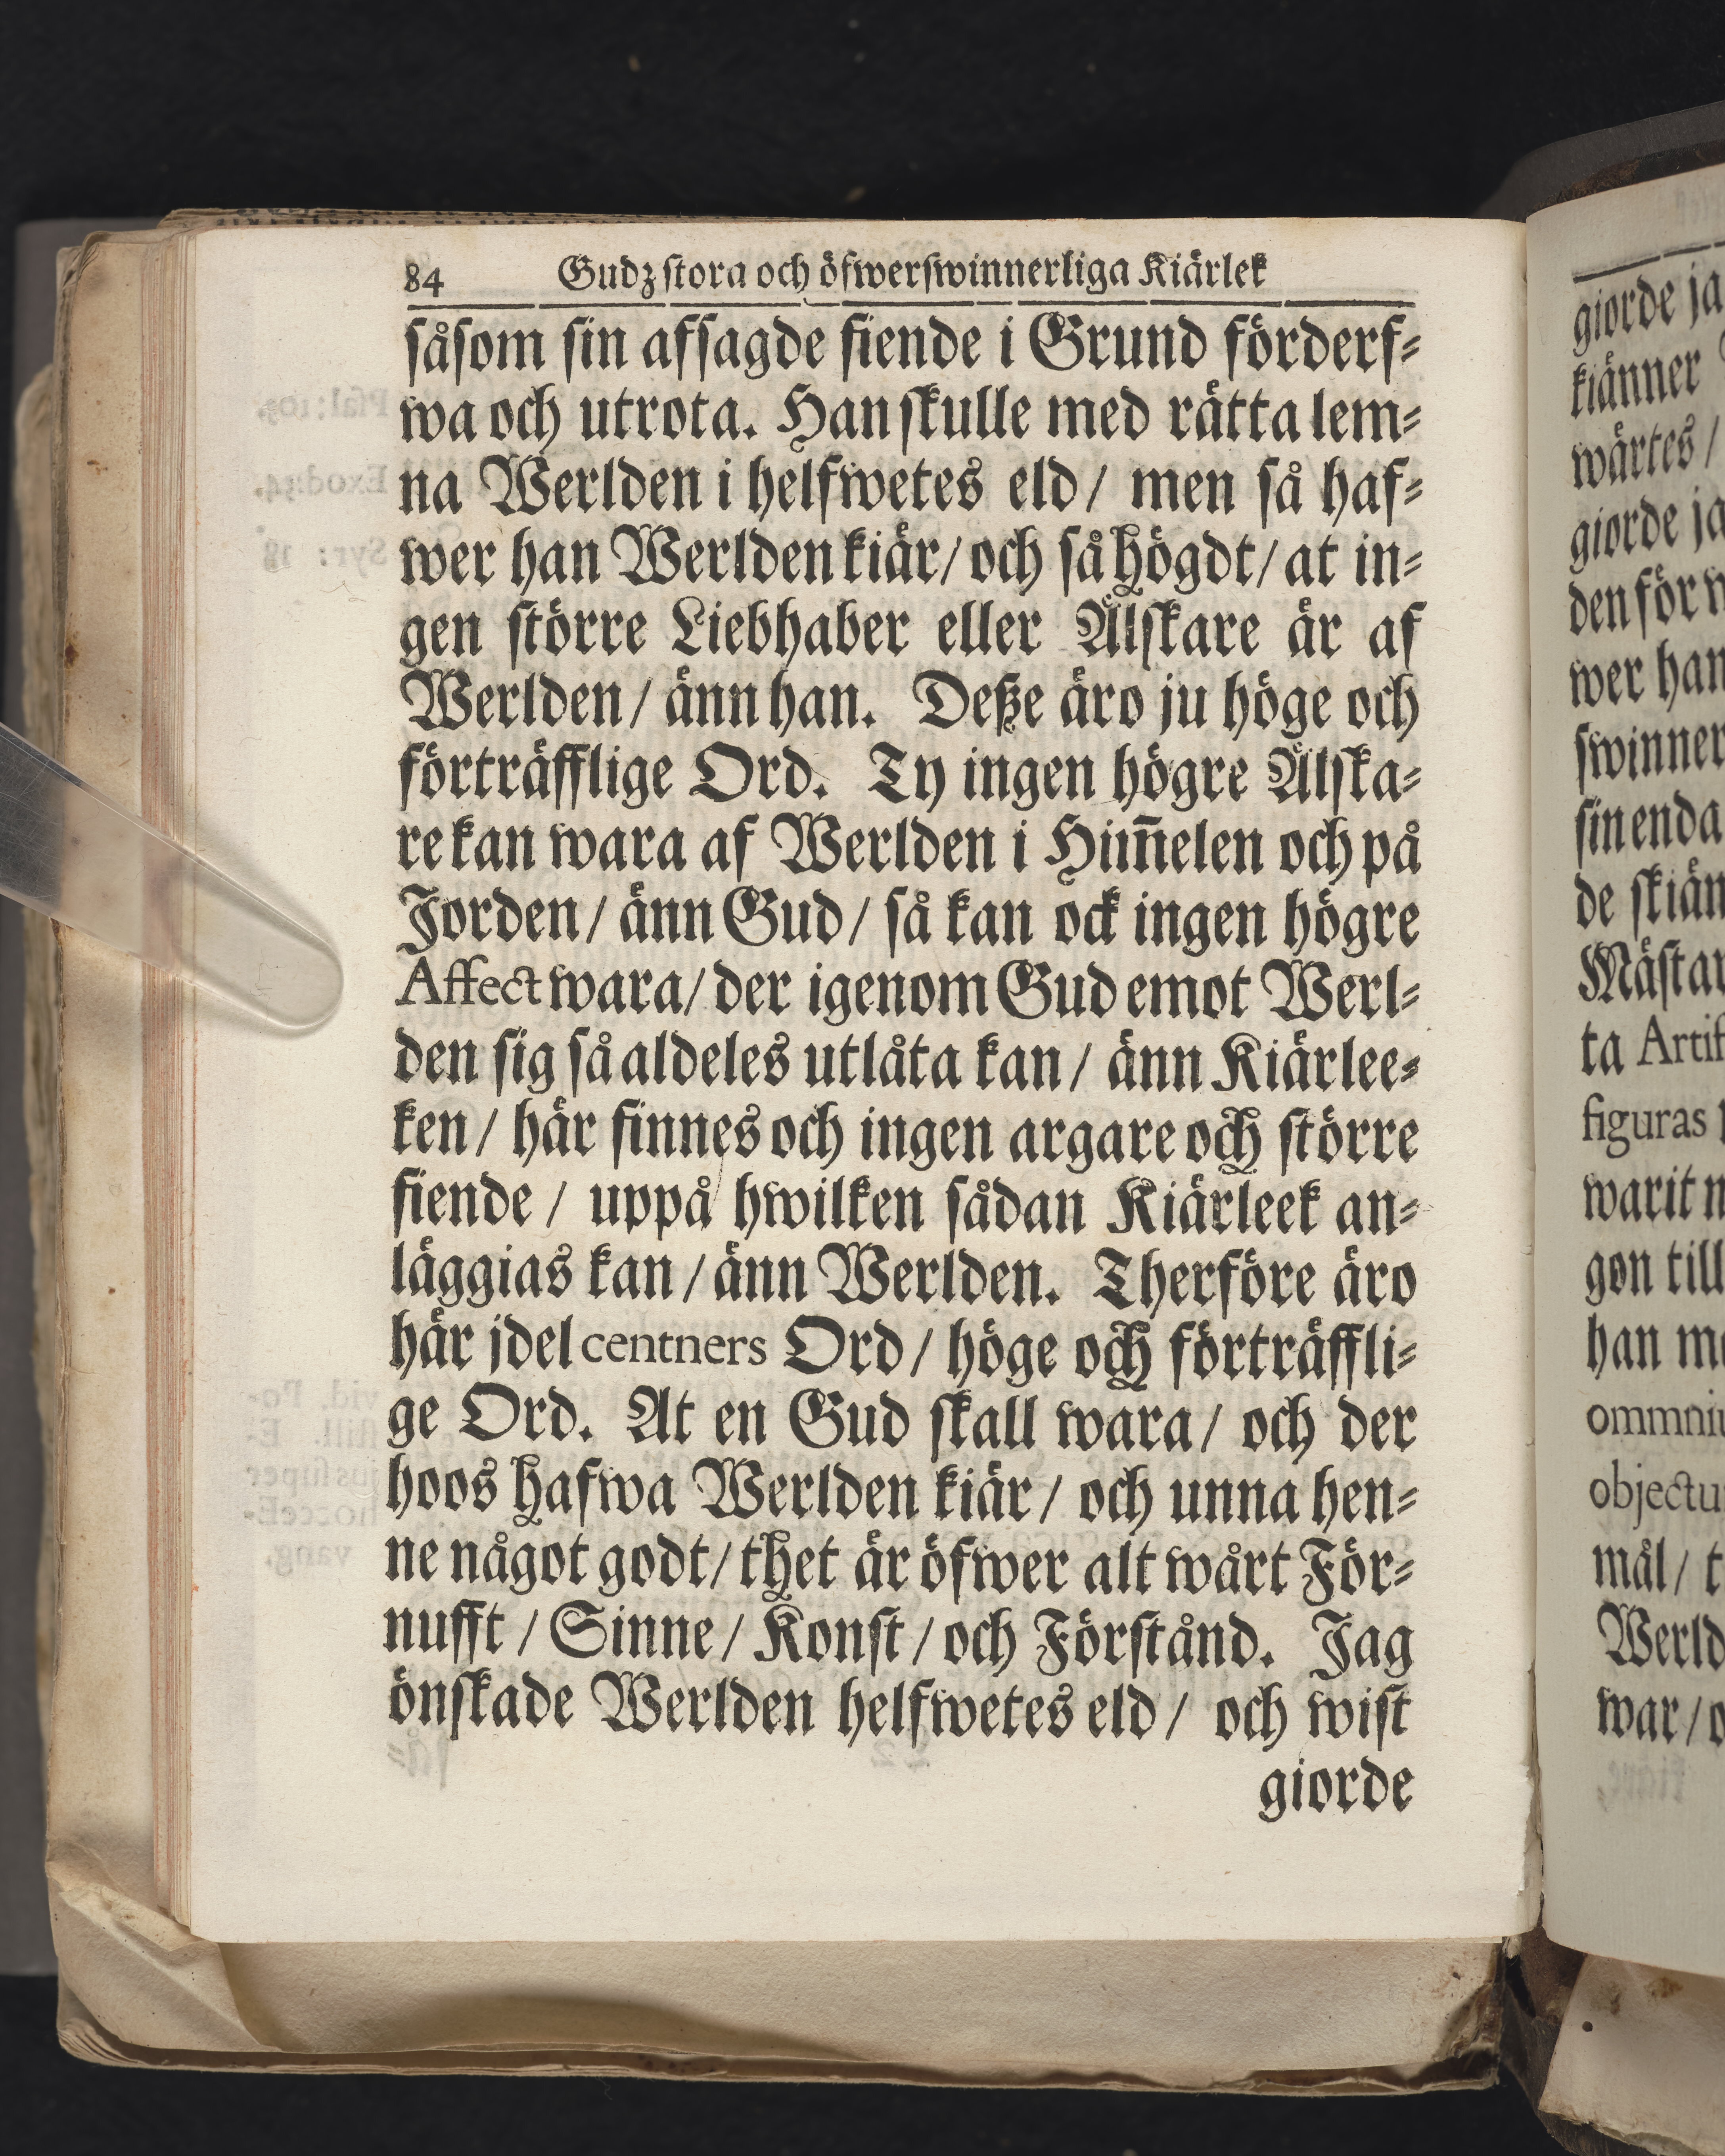 84 Gudz stora och öfwerswinnerliga Kiärlek
såsom sin afsagde fiende i Grund förderf⸗
wa och utrota. Han skulle med rätta lem⸗
na Werlden i helfwetes eld / men så haf⸗
wer han Werlden kiär / och så högdt / at in⸗
gen större Liebhaber eller Älskare är af
Werlden / änn han. Deße äro ju höge och
förträfflige Ord. Ty ingen högre Älska⸗
re kan wara af Werlden i Him̃elen och på
Jorden / änn Gud / så kan ock ingen högre
Affect wara / der igenom Gud emot Werl⸗
den sig så aldeles utlåta kan / änn Kiärlee⸗
ken / här finnes och ingen argare och större
fiende / uppå hwilken sådan Kiärleek an⸗
läggias kan / änn Werlden. Therföre äro
här jdel centners Ord / höge och förträffli⸗
ge Ord. At en Gud skall wara / och der
hoos hafwa Werlden kiär / och unna hen⸗
ne något godt / thet är öfwer alt wårt För⸗
nufft / Sinne / Konst / och Förstånd. Jag
önskade Werlden helfwetes eld / och wist
giorde
giorde ja
kiänner
wärtes /
giorde ja
den för w
wer han
swinner
sin enda
de skiän
Mästar
ta Artif
figuras
warit n
gon till
han me
ommniu
objectu
mål / t
Werld
war / o